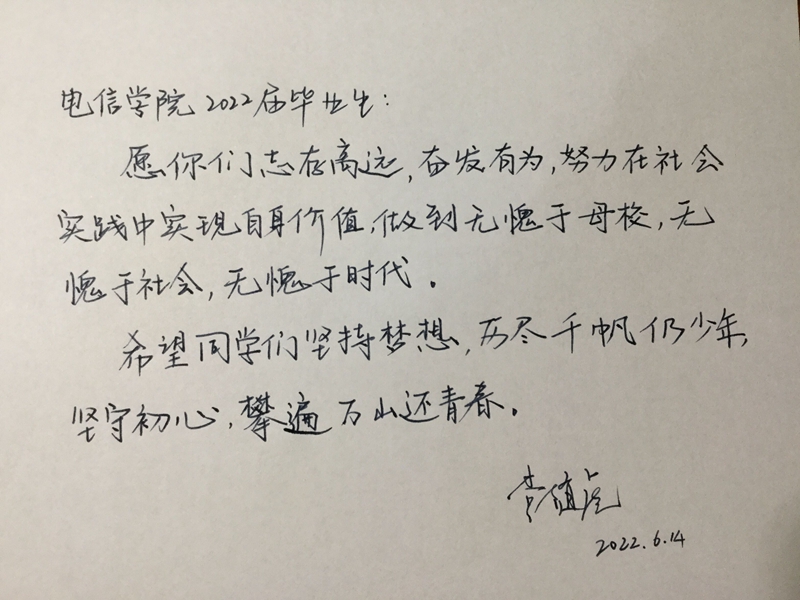 电信学院2022届毕业生：
愿你们志存高远，奋发有为，努力在社会
实践中实现自身价值，做到无愧于母校，无
愧于社会，无愧于时代．
希望同学们坚持梦想，历尽千帆仍少年，
坚守初心，攀遍万山还青春。
2022.6.14